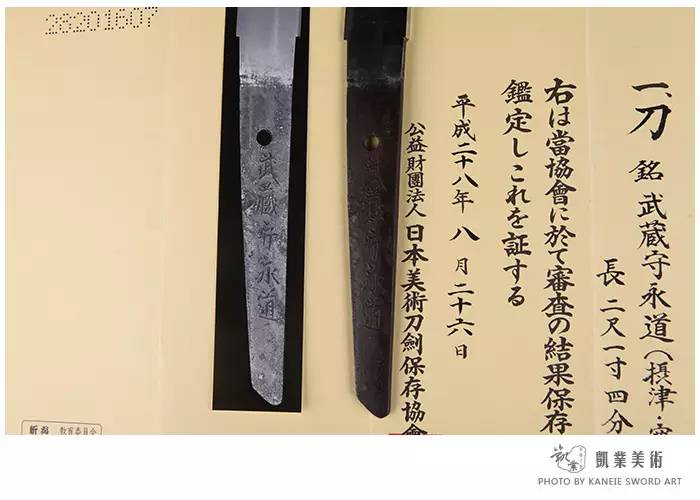 一、刀 銘 武蔵守永道(摂津・
長 二尺一寸四分
右は當協會に於て審査の結果保存
鑑定しこれを証する
平成二十八年 八月二十六日
公益財團法人 日本美術刀劍保存協會
武藏守永道
武藏守永道
28201607
新潟 教育委員会
凱業美術
PHOTO BY KANEIE SWORD ART